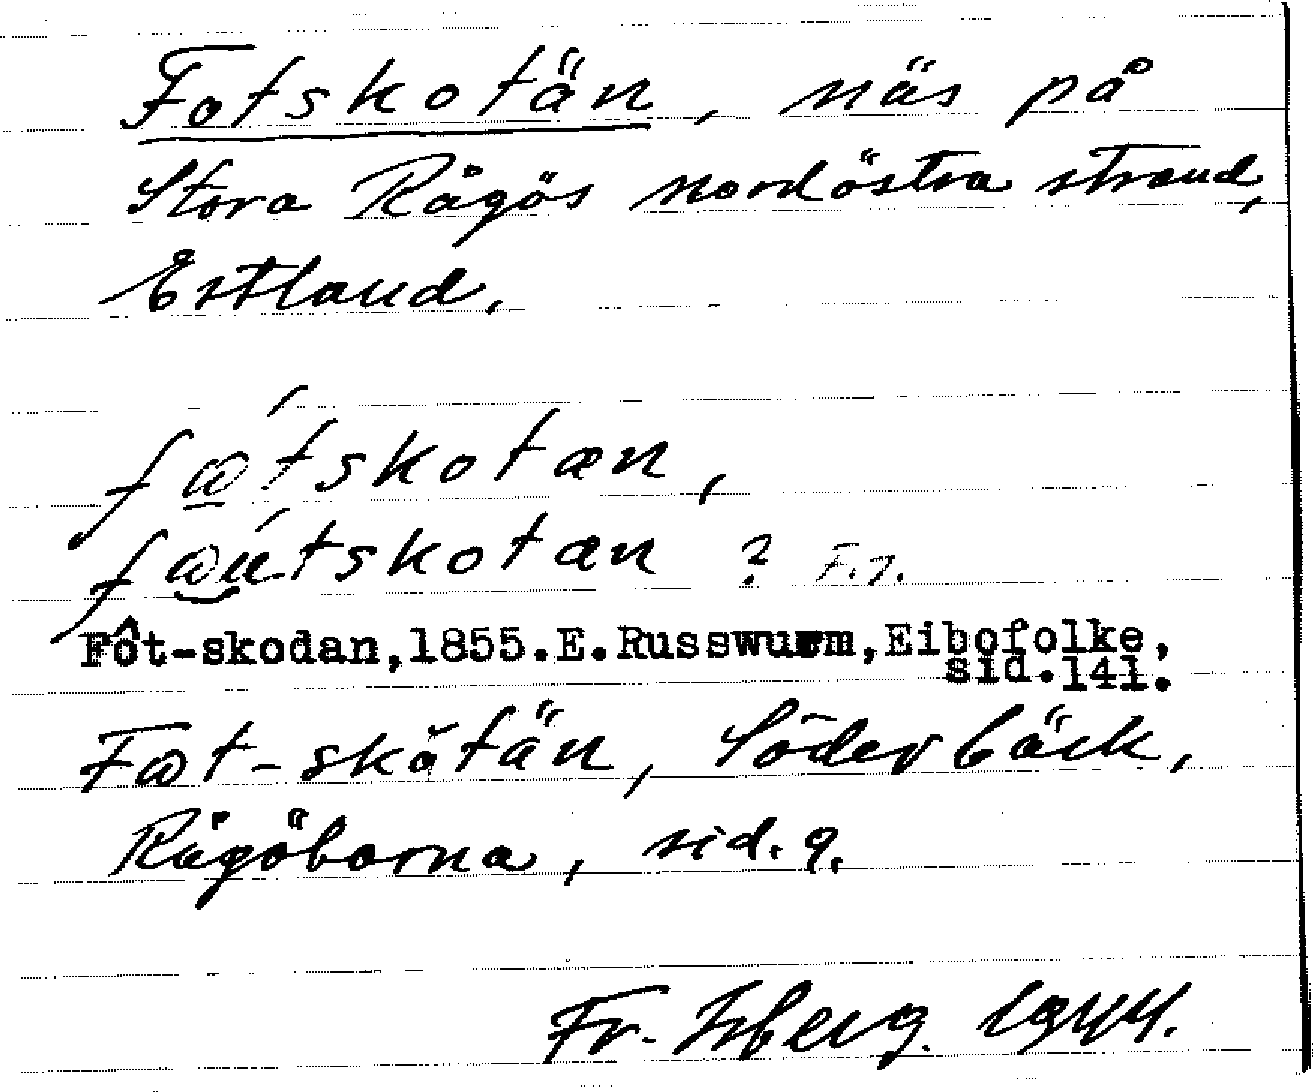 Fotskotän, näs på
Stora Rågös nordöstra strand,
Estland.
fώtskotæn,
fωútskotæn ? F.7.
Fôt-skodan,1855.E.Russwurm,Eibofolke,
sid.141.
Fωt-skŏtän, Söderbäck,
Rågöborna, sid. 9.
Fr. Isberg. 1944.